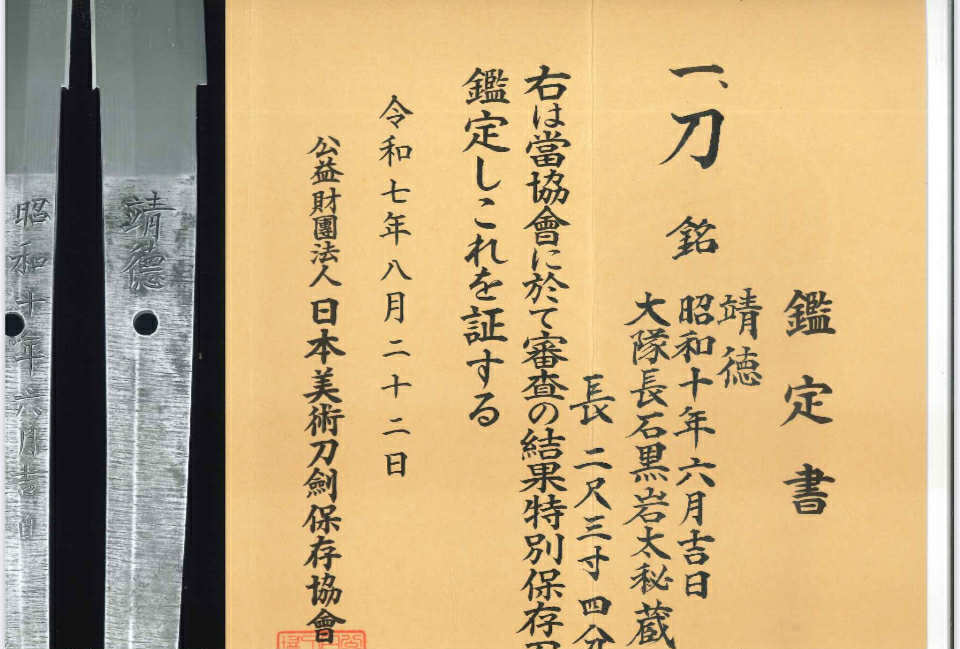 鑑定書
一、刀 銘
靖徳
昭和十年六月吉日
大隊長石黒岩太秘蔵
長 二尺三寸四分
右は當協會に於て審査の結果特別保存刀
鑑定しこれを証する
令和七年八月二十二日
公益財團法人 日本美術刀劍保存協會
靖徳
昭和十年六月吉日